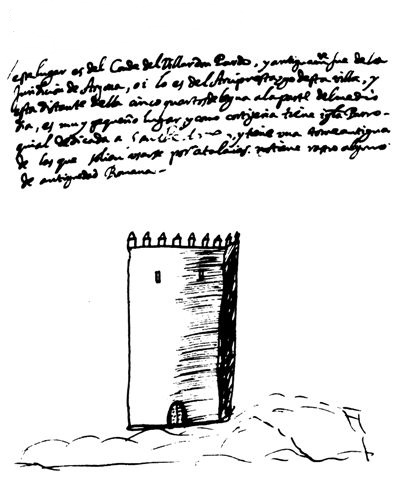 este lugar es del Conde del Villar don Pardo, y antiguamte fue de la
Juridicion de Arjona, oi lo es del Arciprestazgo desta villa, y
esta distante della cinco quartos de legua a la parte del medio
dia, es muy pequeño lugar, y como cortijeria tiene iglª Parro-
quial dedicada a y tiene una torre antigua
de las que solian usarse por atalaias. no tiene rastro alguno
de antiguedad Romana.-